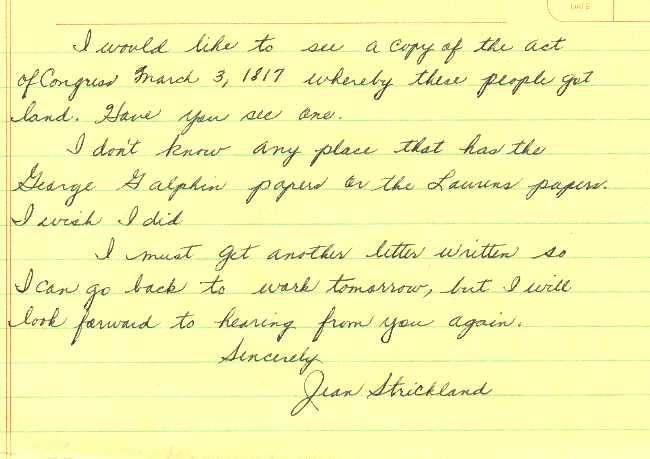 DATE
I would like to see a copy of the act
of Congress March 3, 1817 whereby these people got
land. Have you see one.
I don't know any place that has the
George Galphin papers or the Laurens papers.
I wish I did
I must get another letter written so
I can go back to work tomorrow, but I will
look forward to hearing from you again.
Sincerely
Jean Strickland